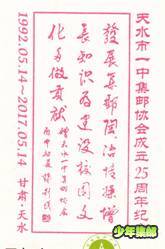 天水市一中集邮协会成立25周年纪
發展集邮陶冶情操增
長知识为建设校园文
化多做贡献
1992.05.14~2017.05.14 甘肃·天水
少年集邮